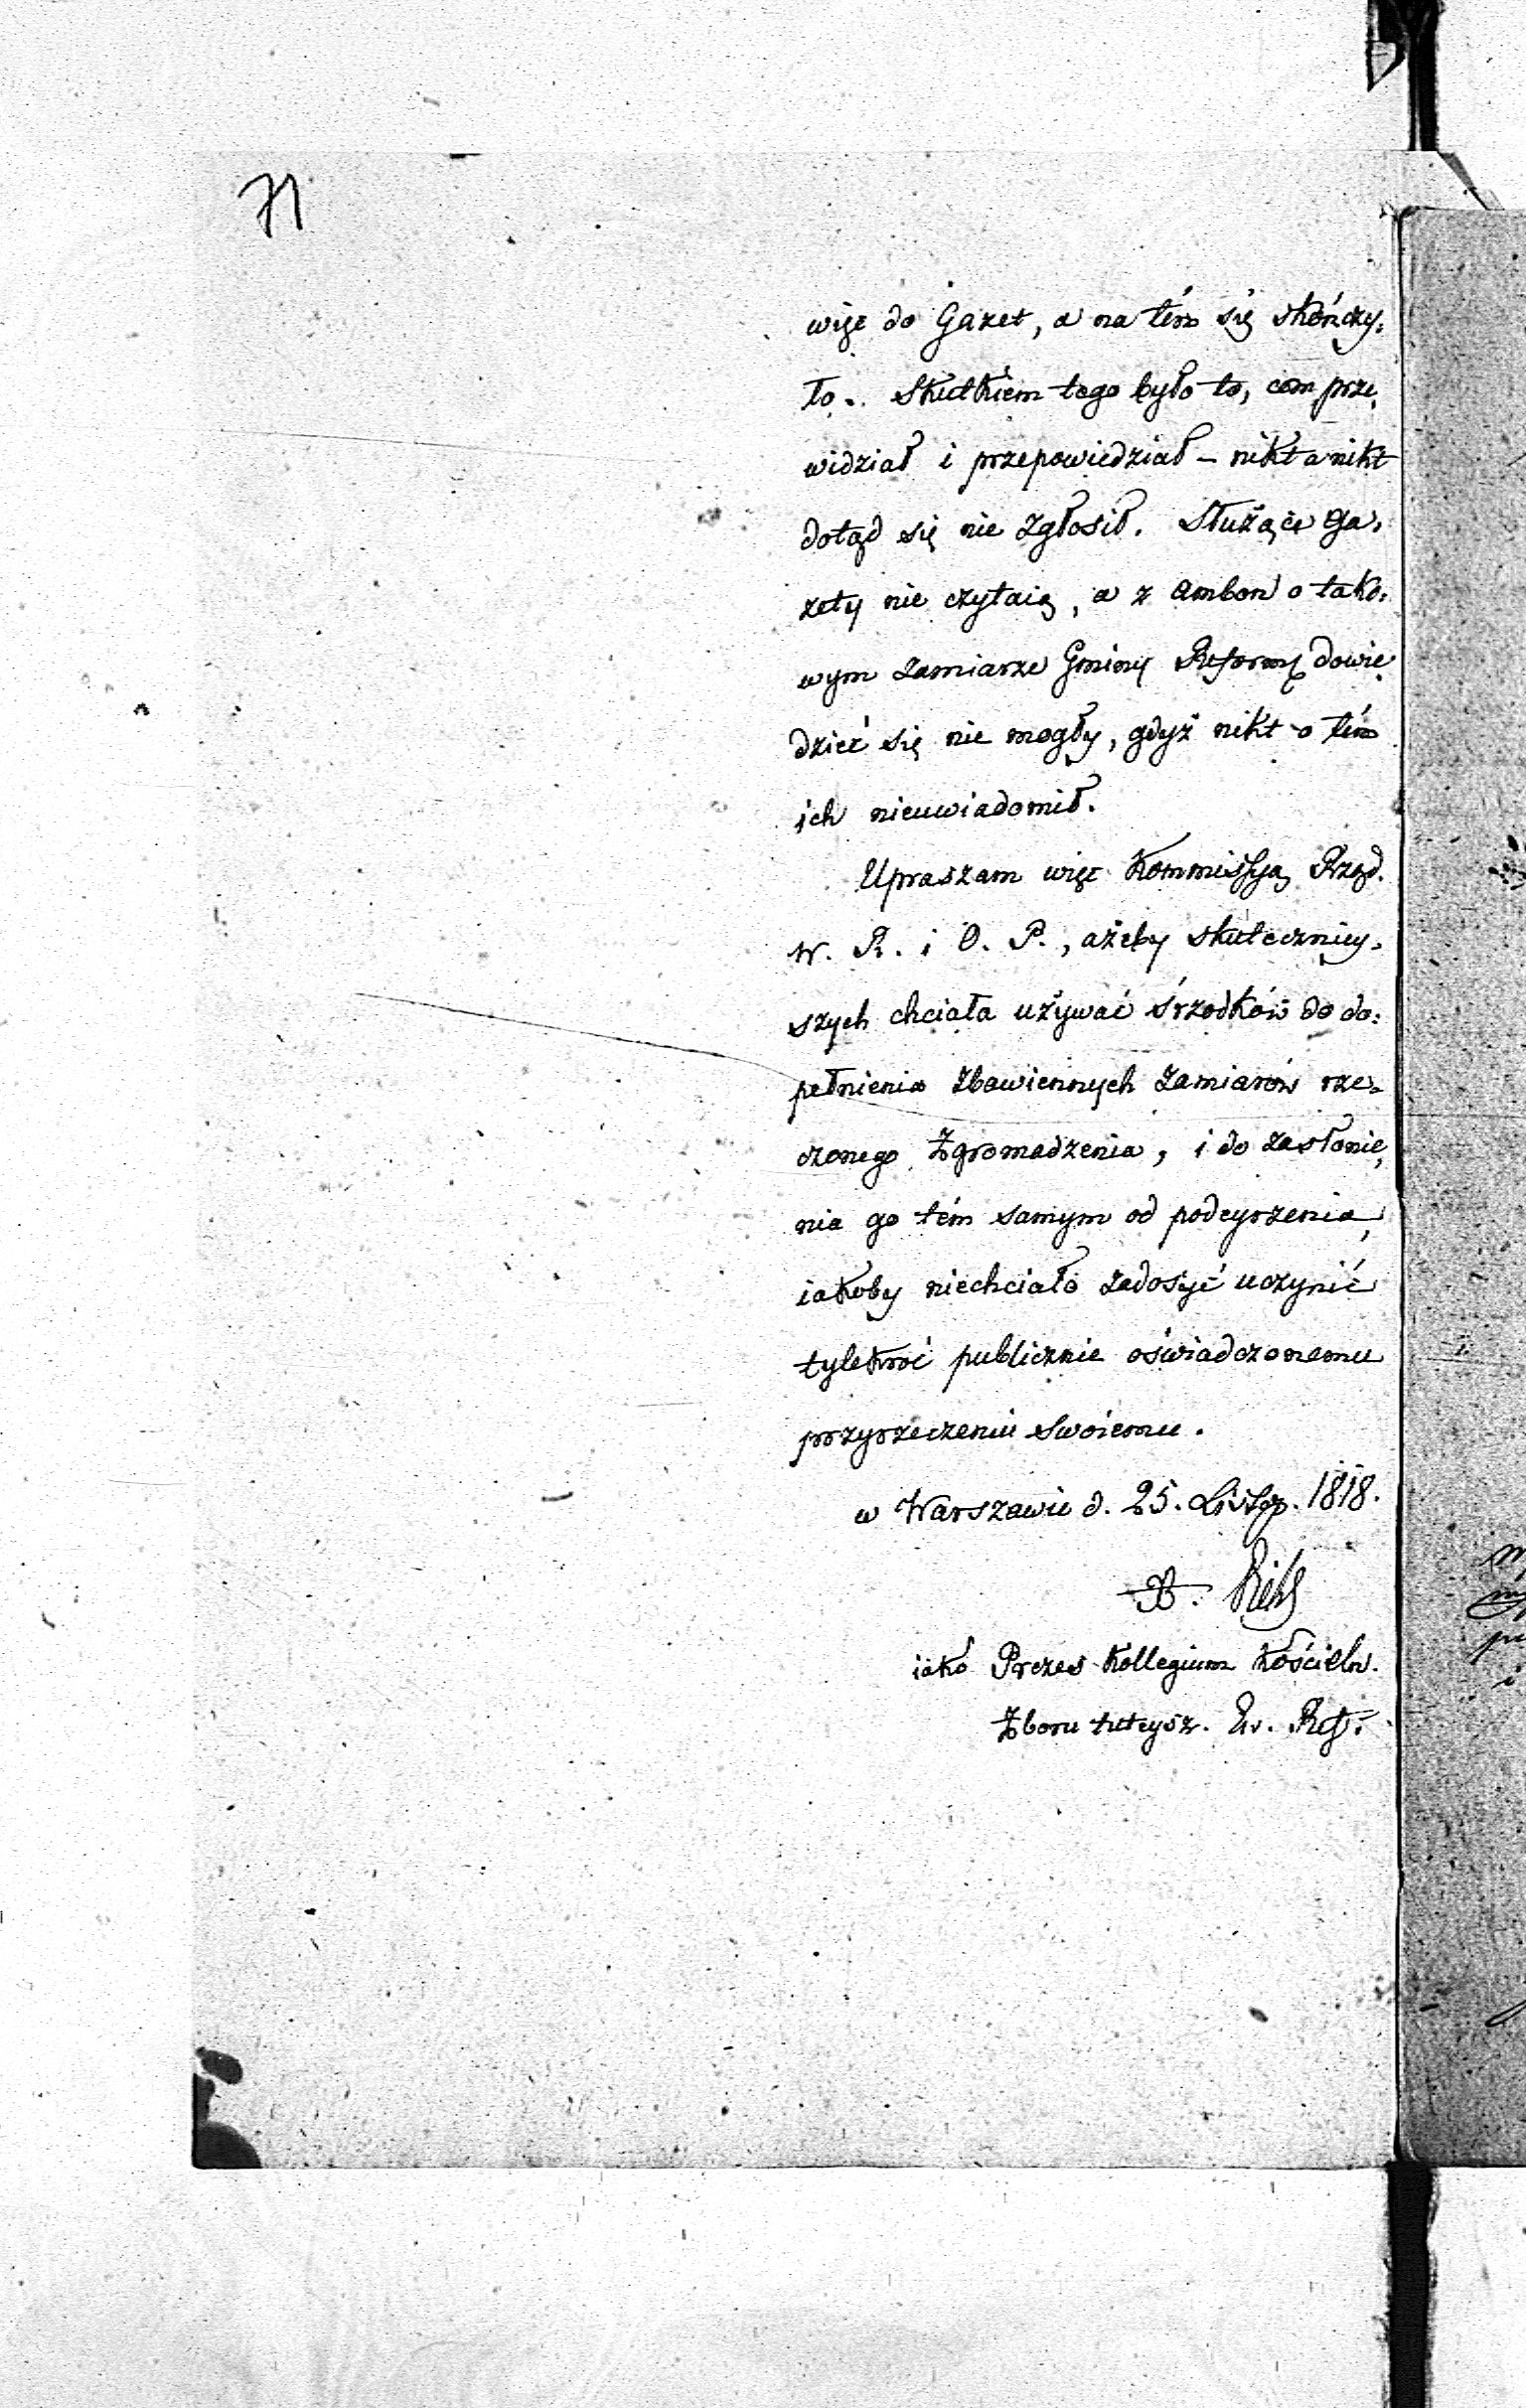 71
więc do Gazet, a na tém się skończy-
ło. Skutkiem tego było to, com prze-
widział i przepowiedział – nikt a nikt
dotąd się nie zgłosił. Służące ga-
zety nie czytaią, a z ambon o tako-
wym zamiarze Gminy Reformy dowie-
dzieć się nie mogły, gdyż nikt o tém
ich nieuwiadomił.
Upraszam więc Kommissyą Rząd.
W. R. i O. P., ażeby skuteczniey-
szych chciała używać śrzodków do do-
pełnienia zbawiennych zamiarów rze-
czonego Zgromadzenia, i do zasłonie-
nia go tém samym od podeyrzenia,
iakoby niechciało zadosyć uczynić
tylekroć publicznie oświadczonemu
przyrzeczeniu swoiemu.
w Warszawie d. 25. Listop. 1818.
iako Prezes Kollegium Kościeln.
Zboru tuteysz. Ev. Ref.